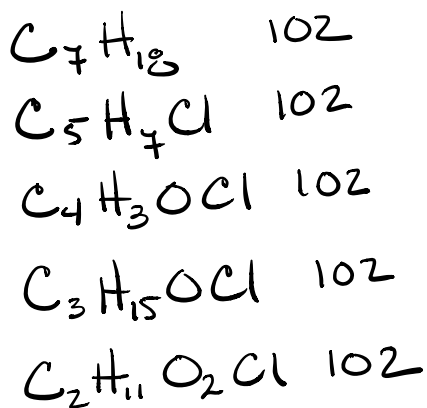 C₇H₁₈ 102
C₅H₇Cl 102
C₄H₃OCl 102
C₃H₁₅OCl 102
C₂H₁₁O₂Cl 102